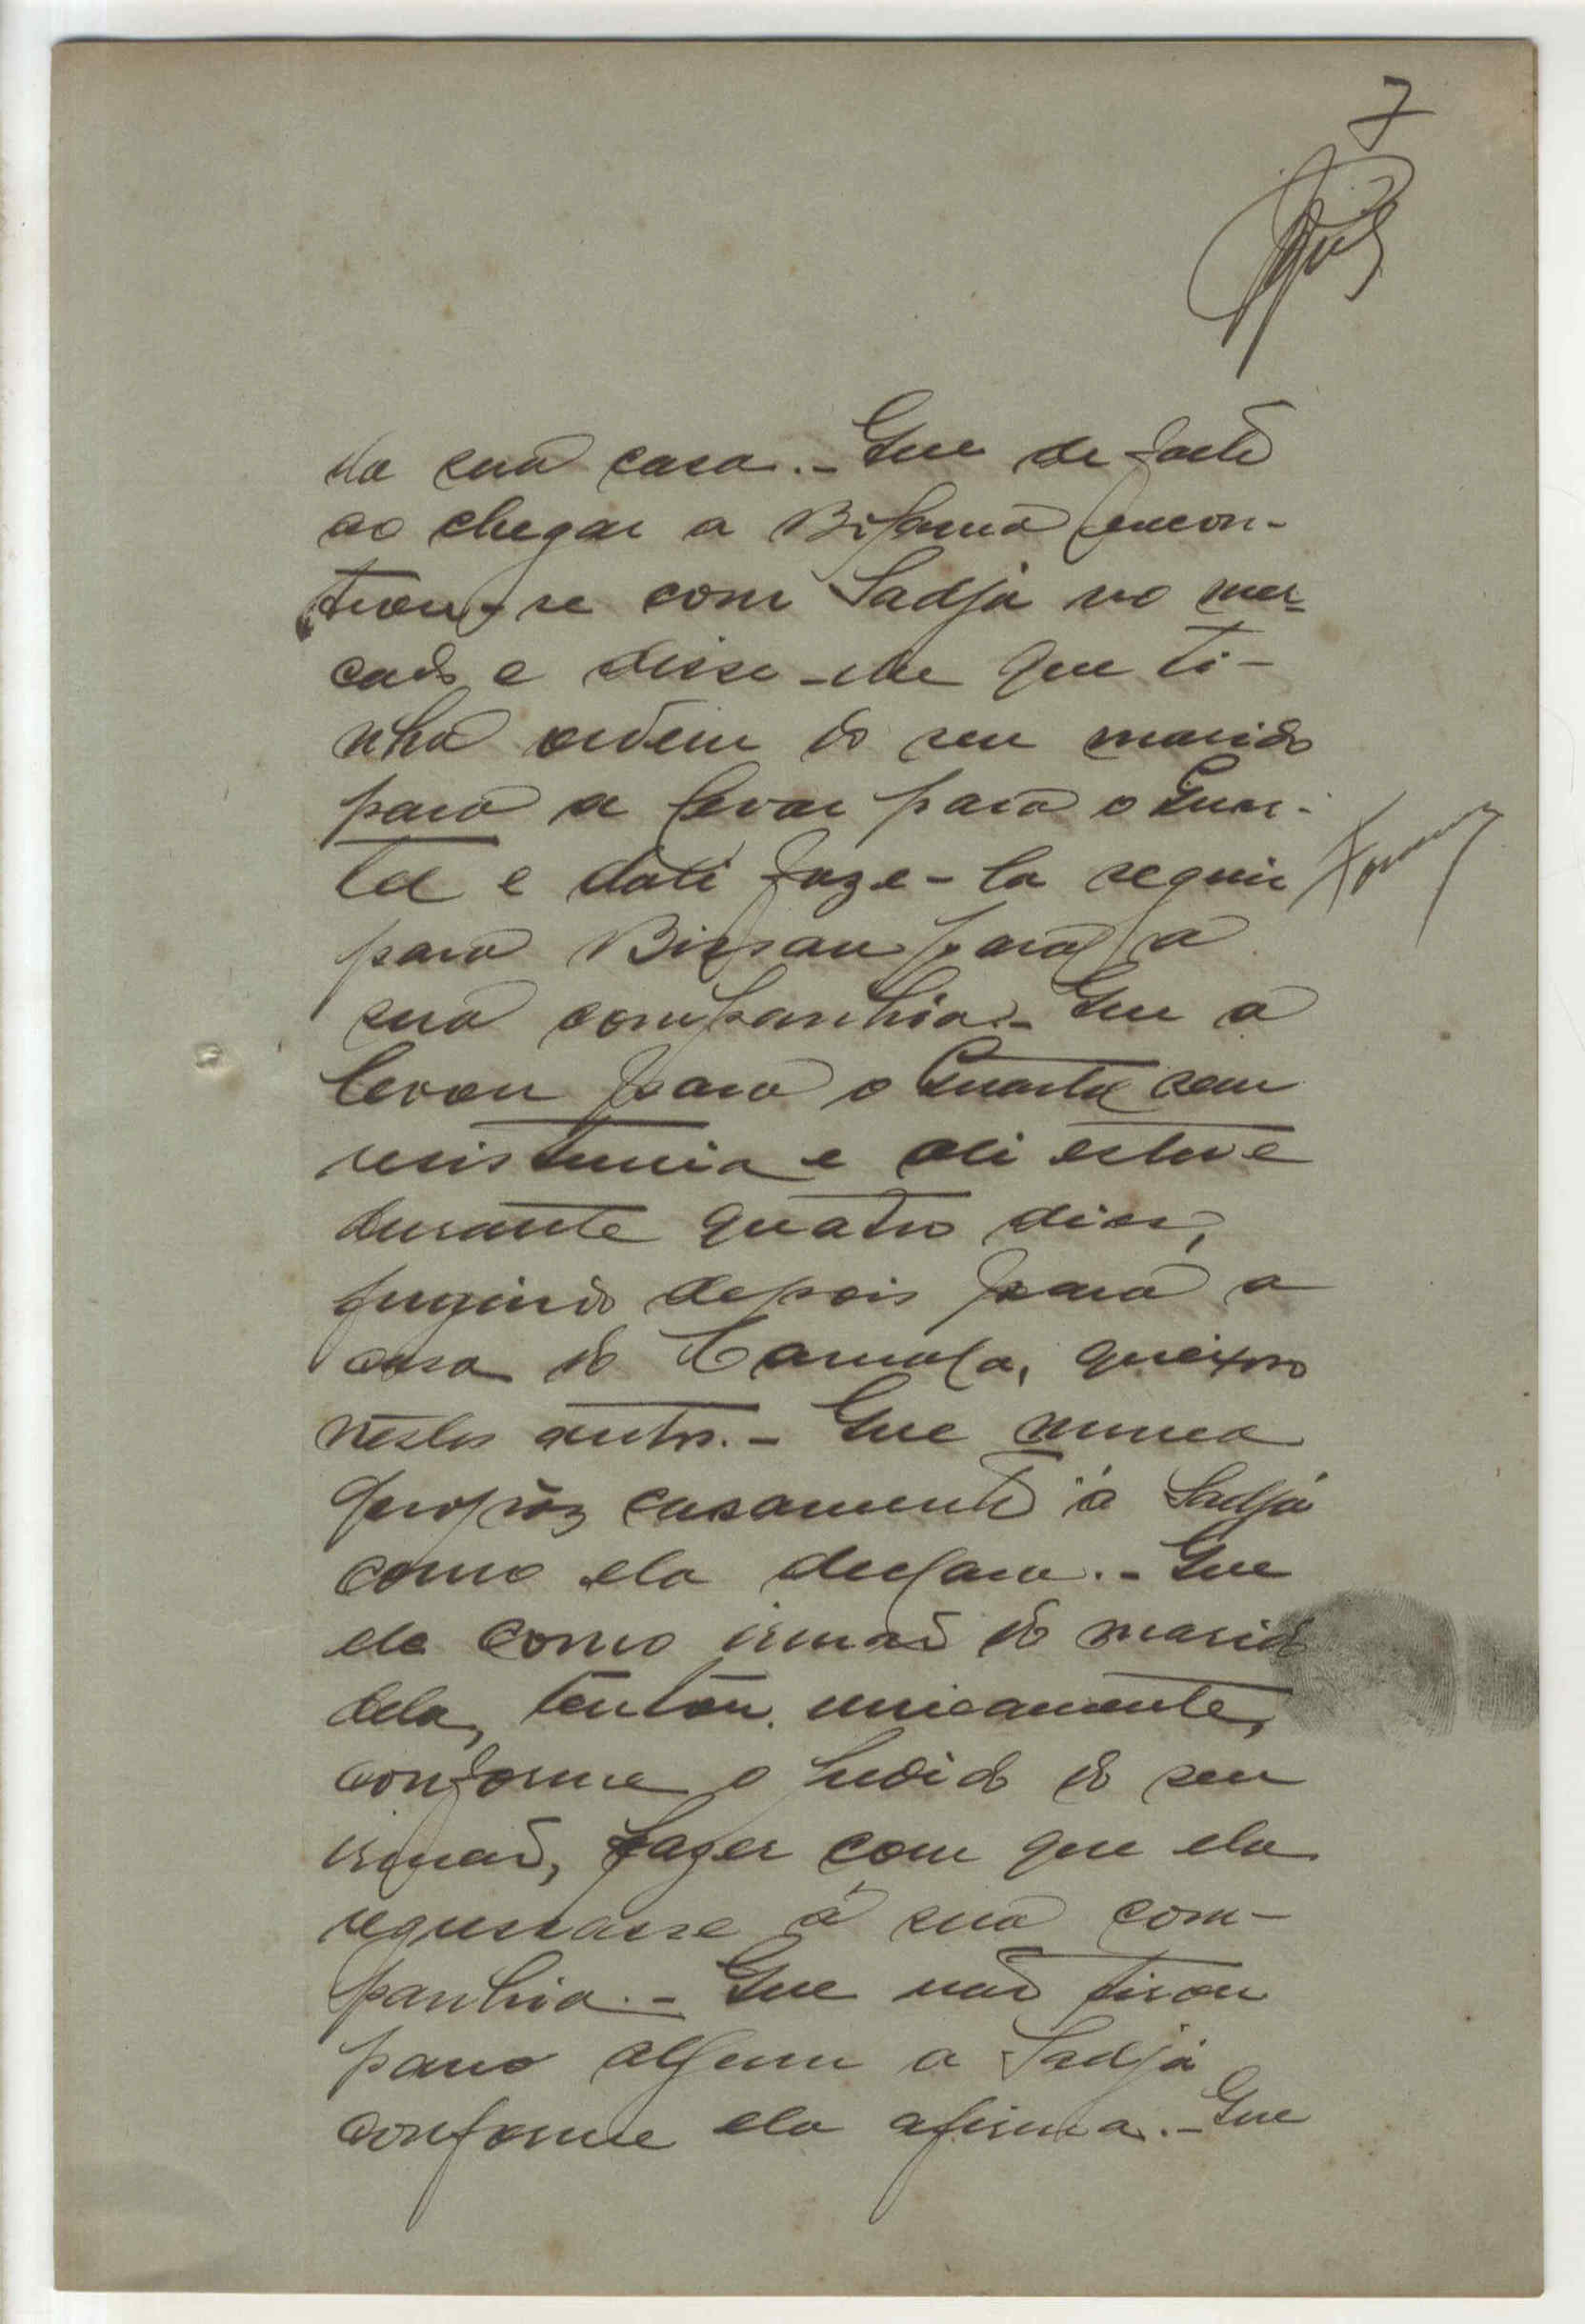 7
da sua casa.- Que de facto
ao chegar a Bifamá encon-
trou-se com Sadjá no mer-
cado e disse-lhe que ti-
nha ordem do seu marido
para a levar para o Quar-
tel e dali faze-la seguir
para Bissau para a
sua companhia.- Que a
levou para o Quartel sem
resistencia e ali esteve
durante quatro dias,
fugindo depois para a
casa do queixoso
nestes autos.- Que nunca
propôz casamento á Sadjá
como ela declara.- Que
ele como irmaõ do marido
dela, tentou unicamente,
conforme o pedido do seu
irmaõ, fazer com que ela
regressasse á sua com-
panhia.- Que naõ tirou
pano algum a Sadjá
conforme ela afirma.- Que